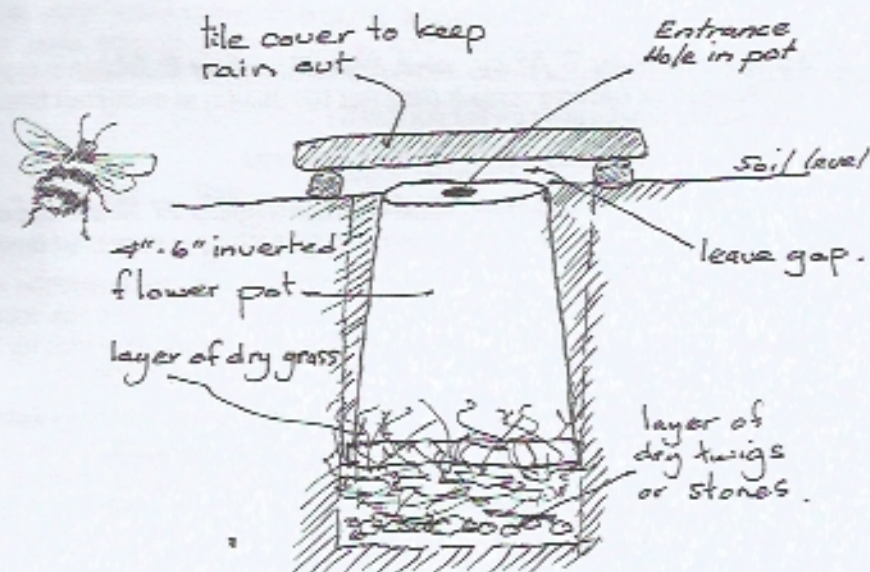 tile cover to keep
rain out
Entrance
Hole in pot
Soil level
4".6" inverted
flower pot
leave gap.
layer of dry grass
layer of
dry twigs
or stones.